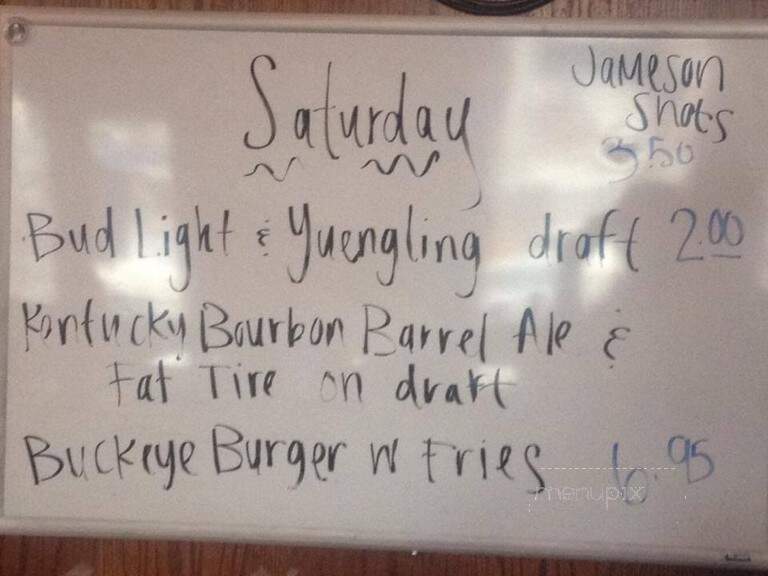 Saturday
Jameson
Shots
3.50
Bud Light & Yuengling draft 2.00
Kentucky Bourbon Barrel Ale &
Fat Tire on draft
Buckeye Burger w Fries 6.95
menupix